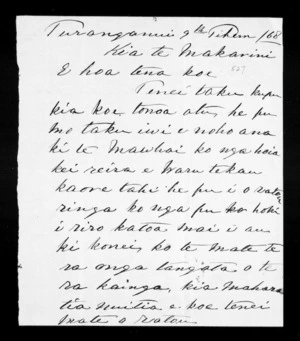 Turanganui 9th Tihem /68
Kia te Makarini
E hoa tena koe
Tenei taku kupu
kia koe, tonoa atu, he pu
mo taku iwi e noho ana
ki te Mawhai ko nga hoia
kei reira e Waru tekau
kaore tahi he pu i o ratou
ringa ko nga pu ko hoki
i riro katoa mai i au
ki konei, ko te mate te
ra onga tangata o te
ra kainga, kia mahara
tia muitia e koe tenei
mate o ratou